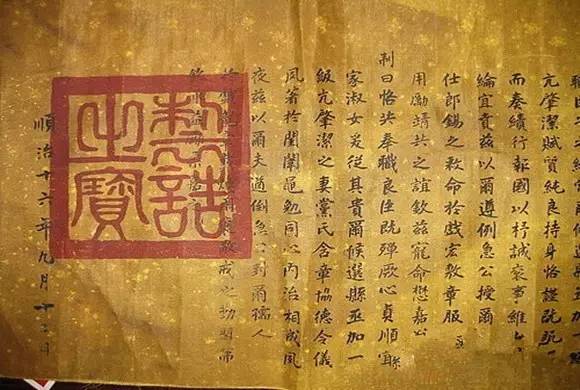 亢肇潔賦質純良持身恪謹既
而奏績行報國以抒誠褒事維
綸宜賁茲以爾遵例急公授爾
仕郎錫之敕命於戲宏敷章服
用勵靖共之誼欽茲寵命懋嘉公
制曰恪共奉職良臣既殫厥心貞順宜
家淑女爰從其貴爾候選縣丞加一
級亢肇潔之妻黨氏含章協德令儀
風著於閨闈黽勉同心內治相成夙
夜茲以爾夫遵例急公封爾孺人
敬戒之
制誥之寶
順治十六年九月十二日